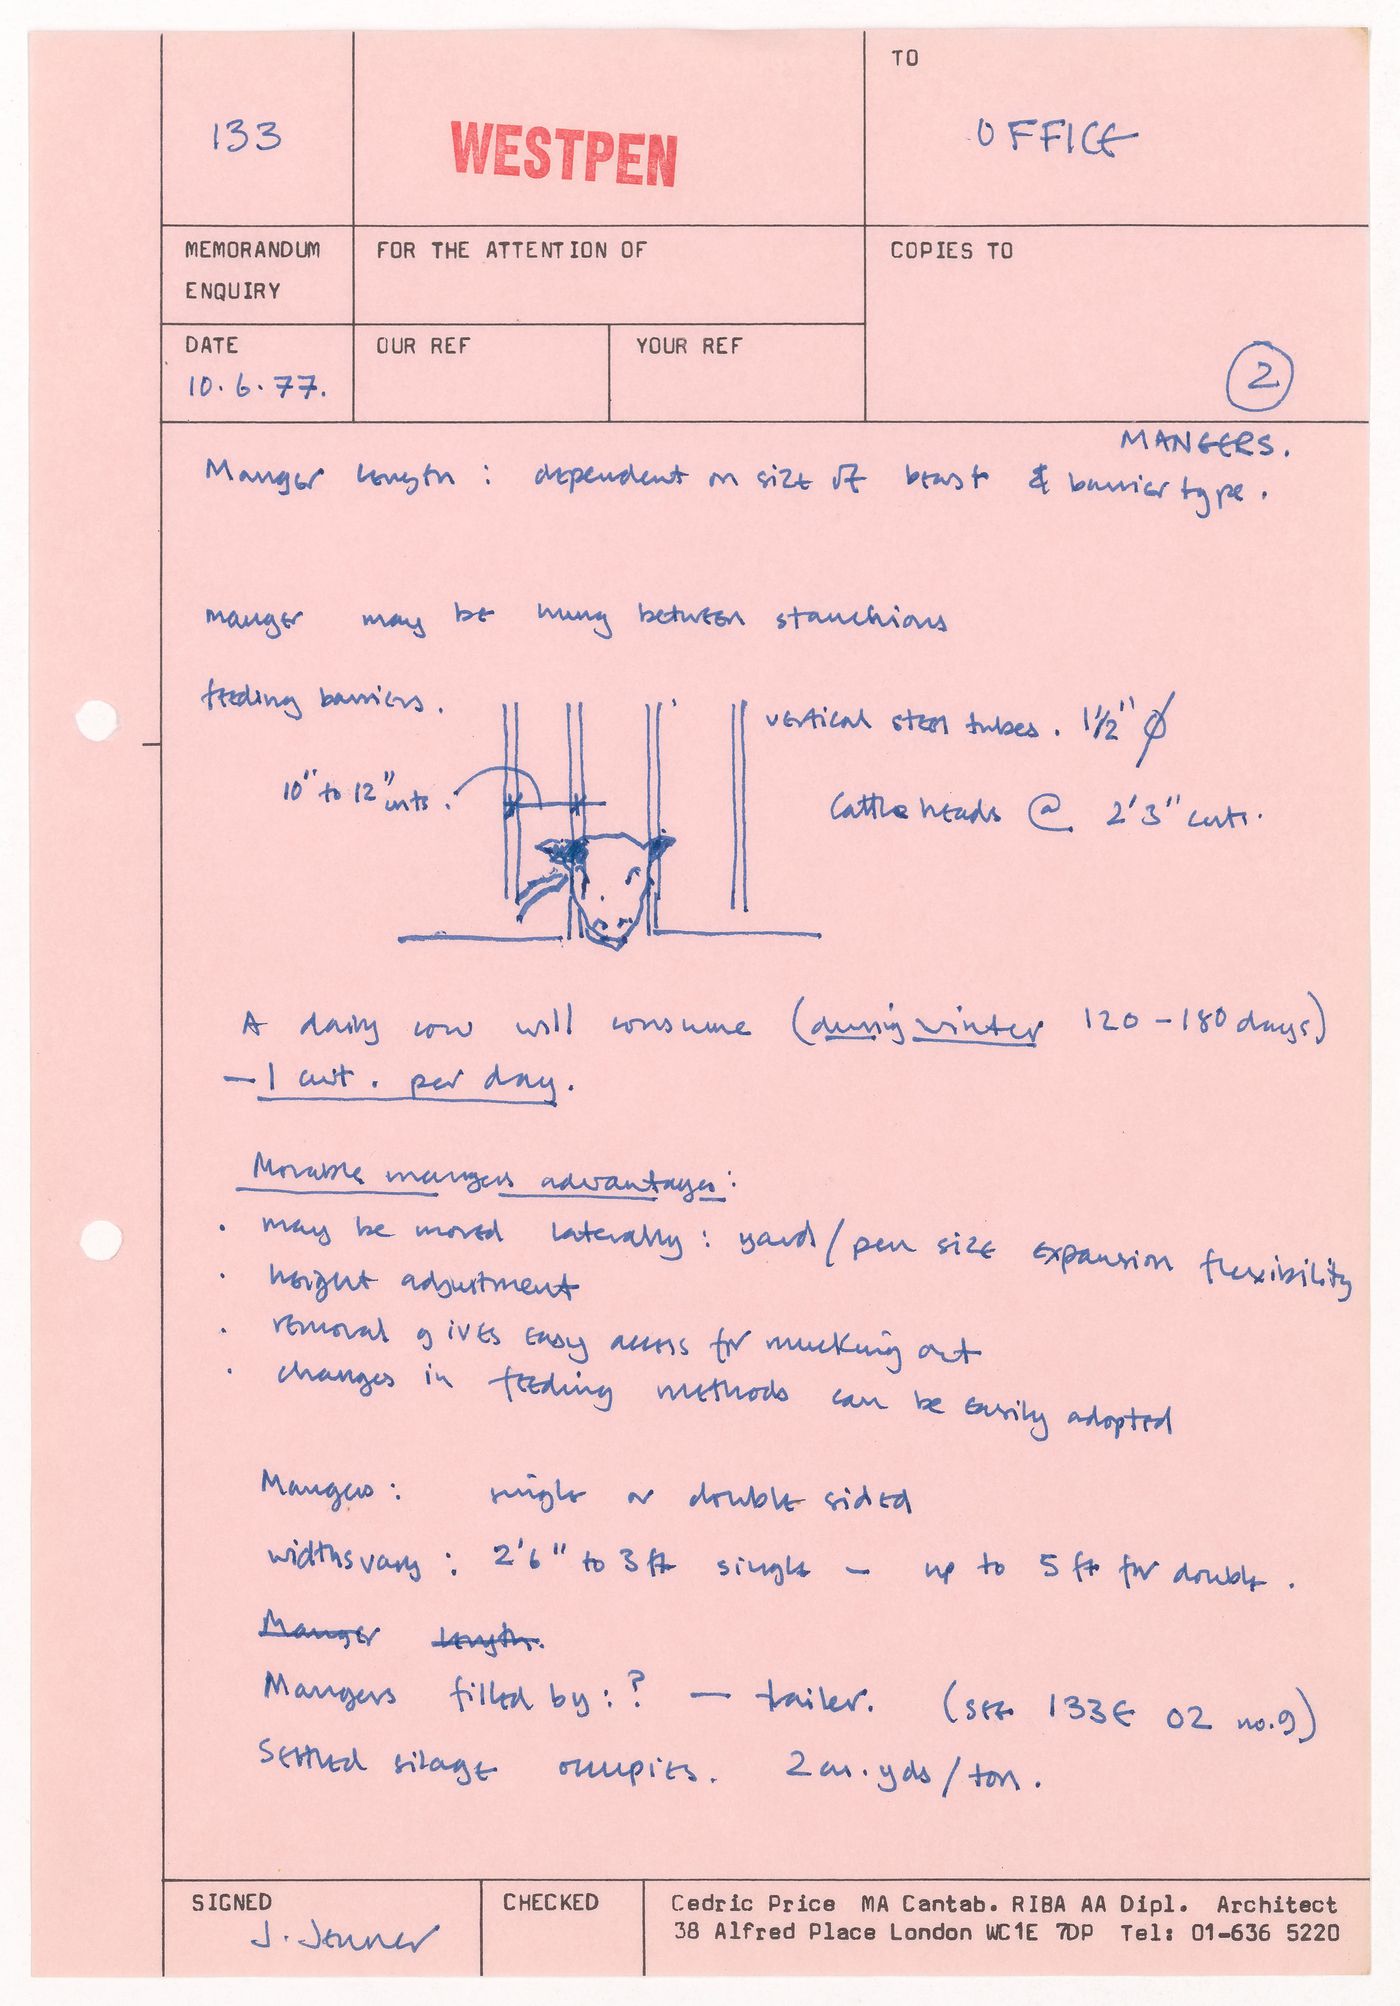 TO
133
WESTPEN
OFFICE
MEMORANDUM
ENQUIRY
FOR THE ATTENTION OF
COPIES TO
DATE
10.6.77.
OUR REF
YOUR REF
2
MANGERS.
Manger length : dependent on size of beast & barrier type.
manger may be hung between stanchions
feeding barriers.
vertical steel tubes. 1½" ø
10" to 12" cnts.
Cattle heads @ 2'3" cnts.
A dairy cow will consume (during winter 120 - 180 days)
— 1 cwt. per day.
Movable mangers advantages:
. may be moved laterally : yard/pen size expansion flexibility
. height adjustment
. removal gives easy access for mucking out
. changes in feeding methods can be easily adopted
Mangers: single or double sided
widths vary : 2'6" to 3 ft single — up to 5 ft for double.
Manger length.
Mangers filled by: ? — trailer. (see 133E 02 no.9)
Settled silage occupies. 2 cu. yds/ton.
SIGNED
J. Jenner
CHECKED
Cedric Price MA Cantab. RIBA AA Dipl. Architect
38 Alfred Place London WC1E 7DP Tel: 01-636 5220